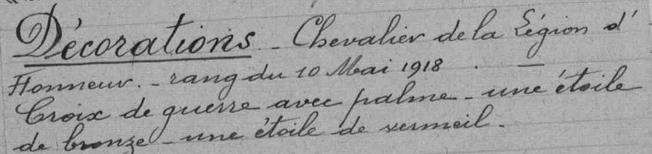 Décorations - Chevalier de la Légion d'
Honneur. - rang du 10 Mai 1918 . _
Croix de guerre avec palme - une étoile
de bronze - une étoile de vermeil -